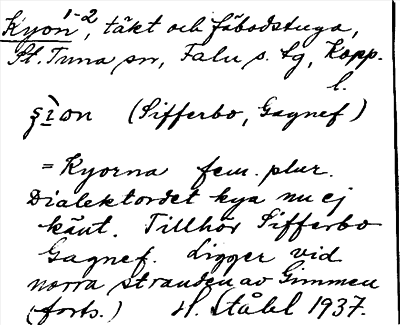 Kyon 1-2, täkt och fäbodstuga,
St. Tuna sn, Falu s. tg, Kopp.
l.
(Sifferbo, Gagnef)
= Kyorna fem. plur.
Dialektordet kya nu ej
känt. Tillhör Sifferbo
Gagnef. Ligger vid
norra stranden av Gimmen
(forts.) H. Ståhl 1937.